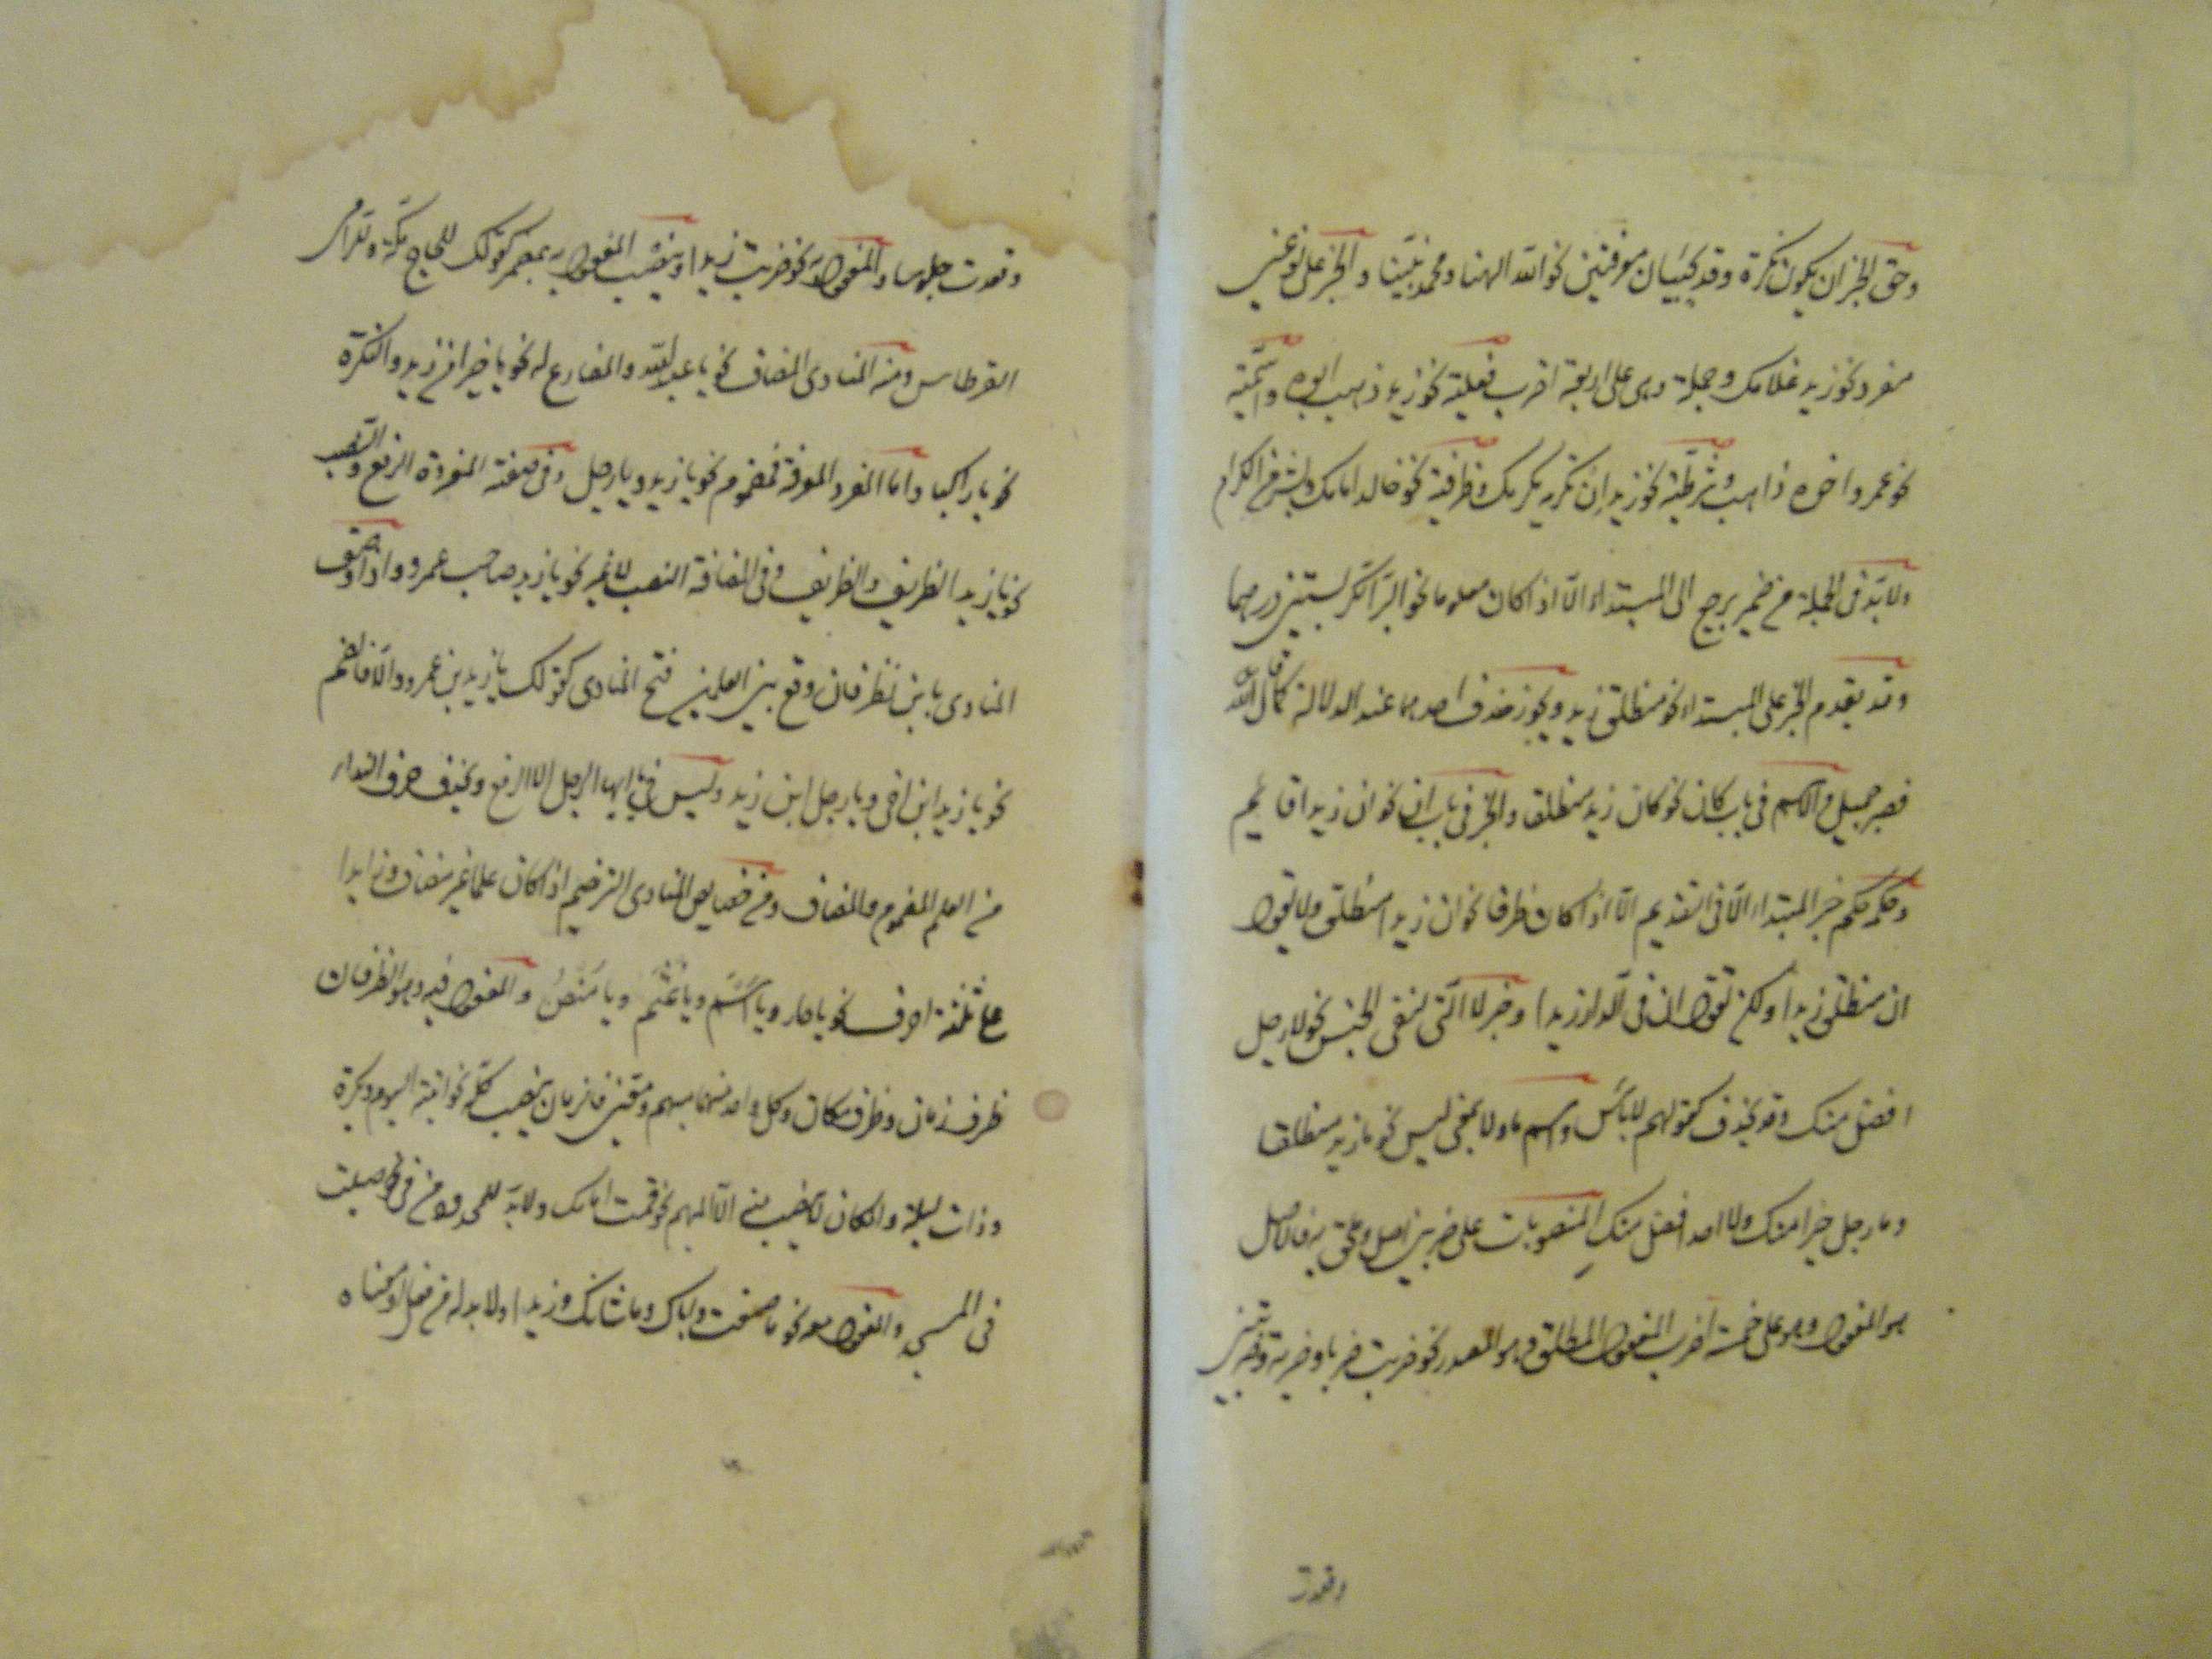 وحق الخبر ان يكون نكرة وقد يجيئان معرفتين نحو الله الهنا ومحمد نبينا والخبر على نوعين
مفرد نحو زيد غلامك وجملة وهى على اربعة اضرب فعلية نحو زيد ذهب ابوه واسمية
نحو عمرو اخوه ذاهب وشرطية نحو زيد ان تكرمه يكرمك وظرفية نحو خالد امامك وبشر من الكرام
ولا بد فى الجملة من ضمير يرجع الى المبتداء الا اذا كان معلوما نحو البر الكر بستين درهما
وقد يقدم الخبر على المبتداء نحو منطلق زيد ويجوز حذف احدهما عند الدلالة كما قال الله
فصبر جميل والاسم فى باب كان نحو كان زيد منطلقا والخبر فى باب ان نحو ان زيدا قايم
وحكمه حكم خبر المبتداء الا فى تقديمه الا اذا كان ظرفا نحو ان زيدا منطلق ولا تقول
ان منطلق زيدا ولكن تقول ان فى الدار زيدا وخبر لا التى لنفى الجنس نحو لا رجل
افضل منك وقد يحذف كقولهم لا باس واسم ما ولا بمعنى ليس نحو ما زيد منطلقا
وما رجل خيرا منك ولا احد افضل منك المنصوبات على ضربين اصل وملحق به فالاصل
هو المفعول وهو على خمسة اضرب المفعول المطلق وهو المصدر نحو ضربت ضربا وضربة وضربتين
وقعدت
وقعدت جلوسا والمفعول به نحو ضربت زيدا وينصب المفعول به بمضمر كقولك للحاج مكة وللرامى
القرطاس ومنه المنادى المضاف نحو يا عبد الله والمضارع له نحو يا خيرا من زيد والنكرة
نحو يا راكبا واما المفرد المعرفة فمضموم نحو يا زيد ويا رجل وفى صفته المفردة الرفع والنصب
نحو يا زيد الظريف والظريف وفى المضافة النصب لا غير نحو يا زيد صاحب عمرو واذا وصف
المنادى بابن نظر فان وقع بين العلمين فتح المنادى كقولك يا زيد بن عمرو والا فالضم
نحو يا زيد ابن اخى ويا رجل ابن زيد وليس فى يا ايها الرجل الا الرفع ويحذف حرف النداء
من العلم المضموم والمضاف ومن خصايص المنادى الترخيم اذا كان علما غير مضاف وزايدا
على ثلثة احرف نحو يا حار ويا اسم ويا عثم ويا منص والمفعول فيه وهو الظرفان
ظرف زمان وظرف مكان وكل واحد منهما مبهم ومعين فالزمان ينصب كله نحو اتيته اليوم وبكرة
وذات ليلة والمكان لا ينصب منه الا المبهم نحو قمت امامك ولا بد للمحدود من فى نحو صليت
فى المسجد والمفعول معه نحو ما صنعت واباك وما شانك وزيدا ولا بد له من فعل او معناه